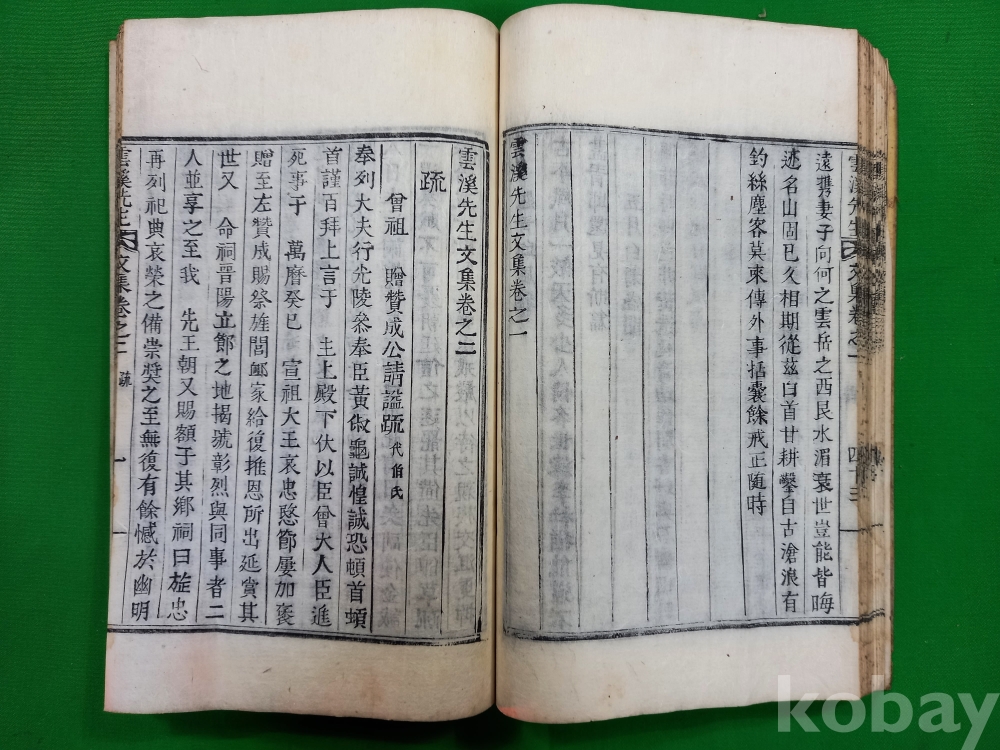 遠携妻子向何之雲岳之西艮水湄衰世豈能皆晦
迹名山固已久相期從茲白首甘耕鑿自古滄浪有
釣絲塵客莫來傳外事括囊餘戒正隨時
雲溪先生文集卷之一
雲溪先生文集卷之二
疏
曾祖 贈贊成公請謚疏 代伯氏
奉列大夫行光陵叅奉臣黃俶龜誠惶誠恐頓首頓
首謹百拜上言于 主上殿下伏以臣曾大人臣進
死事于 萬曆癸巳 宣祖大王哀忠愍節屢加褒
贈至左贊成賜祭旌閭鄕家給復推恩所出延賞其
世又 命祠晋陽立節之地揭號彰烈與同事者二
人並享之至我 先王朝又賜額于其鄉祠曰旌忠
再列祀典哀榮之備崇奬之至無復有餘憾於幽明
雲溪先生文集卷之二 疏 一
kobay